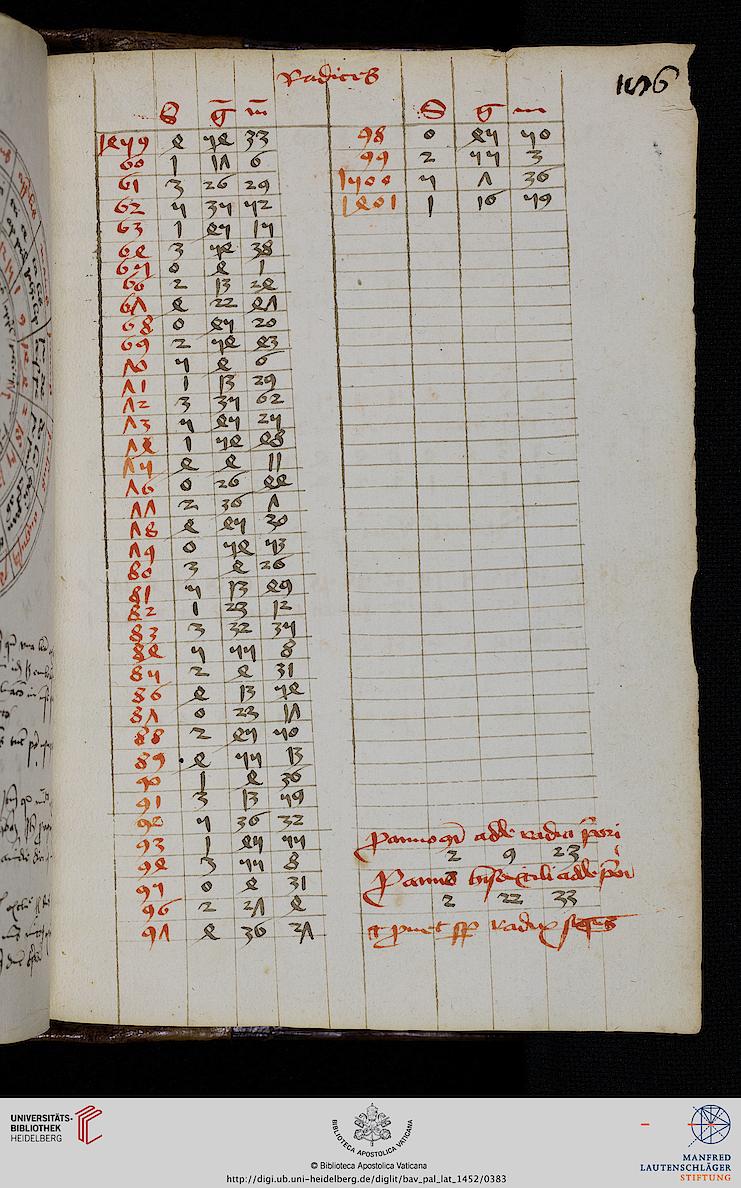 Radices
S g m
1459 4 54 33
60 1 17 6
61 3 26 29
62 5 35 52
63 1 45 15
64 3 54 38
65 0 4 1
66 2 13 24
67 4 22 47
68 0 45 20
69 2 54 43
70 5 4 6
71 1 13 29
72 3 35 62
73 5 45 25
74 1 54 48
75 4 4 11
76 0 26 44
77 2 36 7
78 4 45 30
79 0 54 53
80 3 4 26
81 5 13 49
82 1 23 12
83 3 32 35
84 5 55 8
85 2 4 31
86 4 13 54
87 0 23 17
88 2 45 50
89 4 55 13
90 1 4 36
91 3 13 59
92 5 36 32
93 1 45 55
94 3 55 8
95 0 4 31
96 2 27 4
97 4 36 27
S g m
98 0 45 50
99 2 55 3
1500 5 7 36
1401 1 16 59
adde radici priori
2 9 23
Pro anno bisextili adde priori
2 22 33
et radix sequens
UNIVERSITÄTS-
BIBLIOTHEK
HEIDELBERG
BIBLIOTECA APOSTOLICA VATICANA
© Biblioteca Apostolica Vaticana
http://digi.ub.uni-heidelberg.de/diglit/bav_pal_lat_1452/0383
MANFRED
LAUTENSCHLÄGER
STIFTUNG